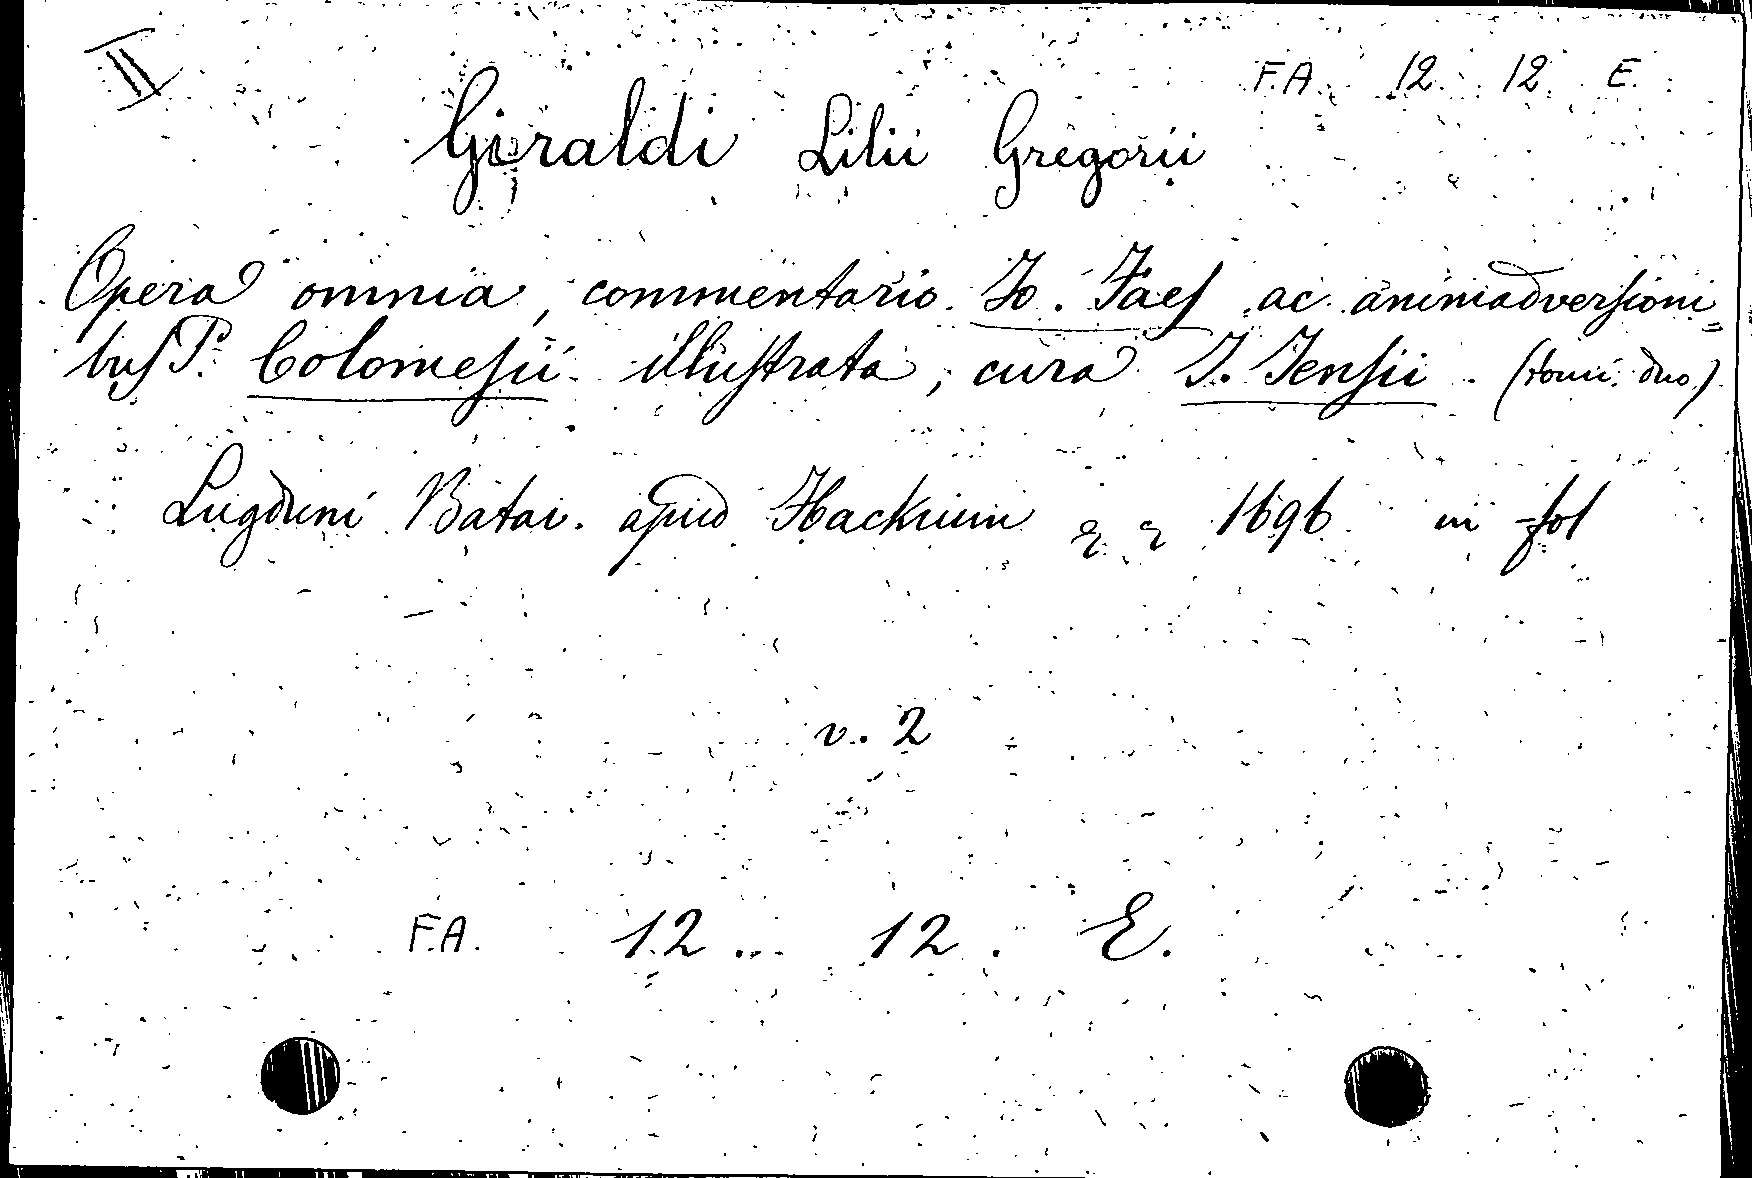 II
F.A. 12 12 E.
Giraldi Lilii Gregorii
Opera omnia, commentario Jo. Faes ac animadversioni=
bus P. Colomesii illustrata, cura J. Jensii (tomi duo)
Lugduni Batav. apud Hackium 1696 in fol
v. 2
F.A. 12. 12. E.